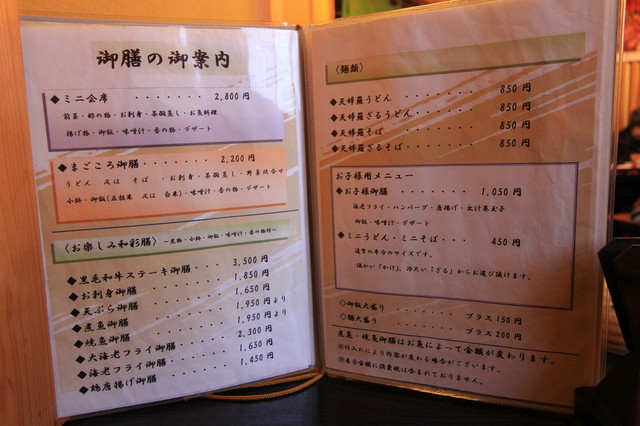 御膳の御案内
◆ミニ会席 ・・・・・・・ 2,800円
前菜・酢の物・お刺身・茶碗蒸し・お魚料理
揚げ物・御飯・味噌汁・香の物・デザート
◆まごころ御膳・・・・・・・ 2,200円
うどん 又は そば ・お刺身・茶碗蒸し・野菜炊合せ
小鉢・御飯(五穀米 又は 白米)・味噌汁・香の物・デザート
〈お楽しみ和彩膳〉 〜煮物・小鉢・御飯・味噌汁・香の物付〜
◆黒毛和牛ステーキ御膳・・・ 3,500円
◆お刺身御膳・・・・・・・ 1,850円
◆天ぷら御膳・・・・・・・ 1,650円
◆煮魚御膳・・・・・・・ 1,950円より
◆焼魚御膳・・・・・・・ 1,950円より
◆大海老フライ御膳・・・・ 2,300円
◆海老フライ御膳・・・・・ 1,650円
◆鶏唐揚げ御膳・・・・・ 1,450円
〈麺類〉
◆天婦羅うどん・・・・・・・ 850円
◆天婦羅ざるうどん・・・・・ 850円
◆天婦羅そば・・・・・・・ 850円
◆天婦羅ざるそば・・・・・・ 850円
お子様用メニュー
◆お子様御膳・・・・・・・ 1,050円
海老フライ・ハンバーグ・唐揚げ・出汁巻玉子
御飯・味噌汁・デザート
◆ミニうどん・ミニそば・・・ 450円
通常の半分のサイズです。
温かい「かけ」、冷たい「ざる」からお選び頂けます。
◇御飯大盛り ・・・・・・ プラス150円
◇麺大盛り ・・・・・・・ プラス200円
煮魚・焼魚御膳はお魚によって金額が変わります。
※仕入れにより内容が変わる場合がございます。
※表示金額に消費税は含まれておりません。